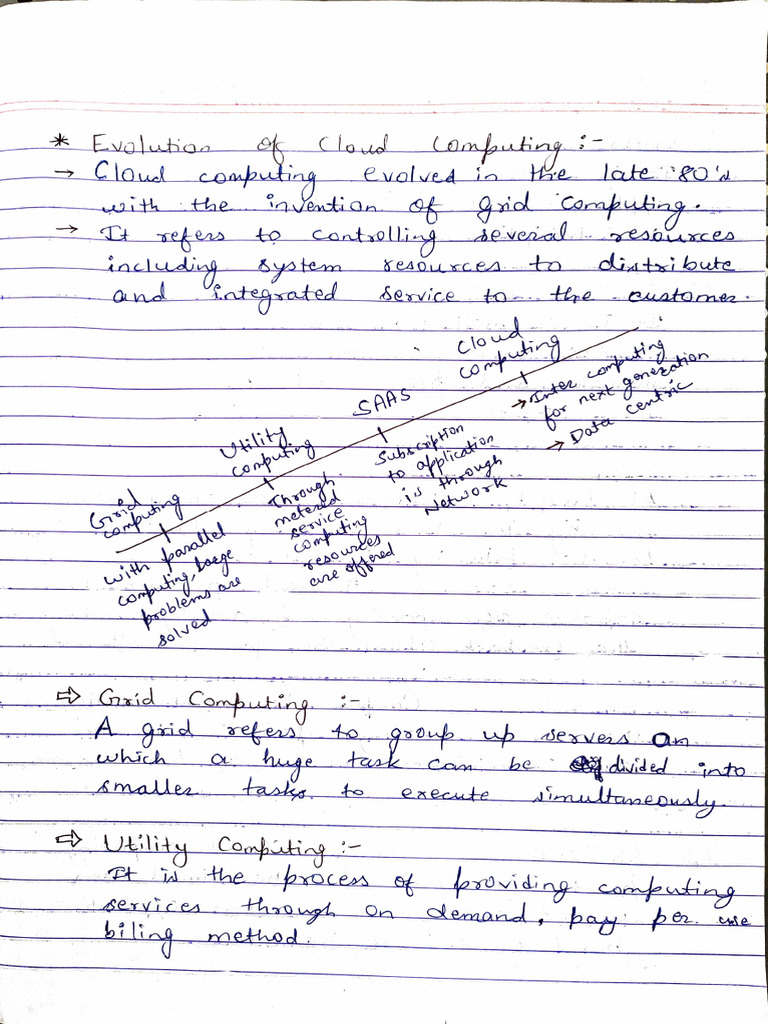 * Evolution of Cloud Computing :-
→ Cloud computing evolved in the late '80's
with the invention of grid computing.
→ It refers to controlling several resources
including system resources to distribute
and integrated service to the customer.
Grid
computing
with parallel
computing, large
problems are
solved
Utility
computing
Through
metered
service
computing
resources
are offered
SAAS
Subscription
to application
is through
Network
Cloud
computing
→ Inter computing
for next generation
→ Data centric
⇒ Grid Computing :-
A grid refers to group up servers on
which a huge task can be divided into
smaller tasks to execute simultaneously.
⇒ Utility Computing :-
It is the process of providing computing
services through on demand, pay per use
biling method.